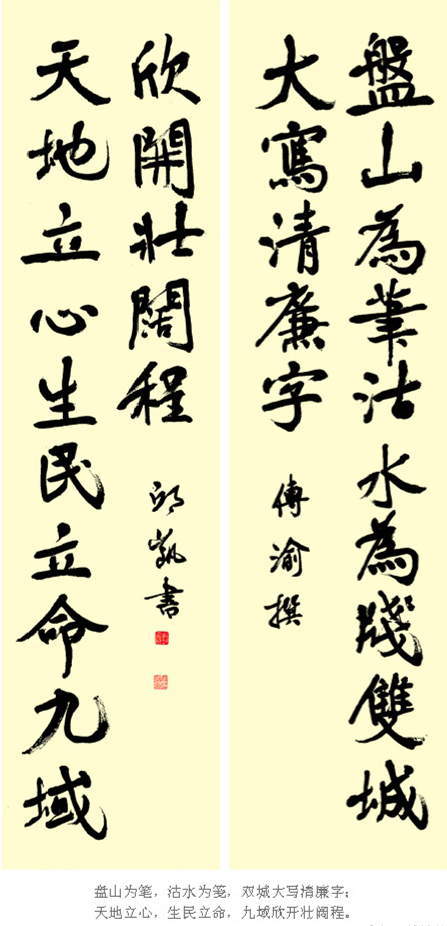 盤山為筆沽水為牋雙城
大寫清廉字
傅渝撰
天地立心生民立命九域
欣開壯闊程
邱凱書
盘山为笔，沽水为笺，双城大写清廉字；
天地立心，生民立命，九域欣开壮阔程。